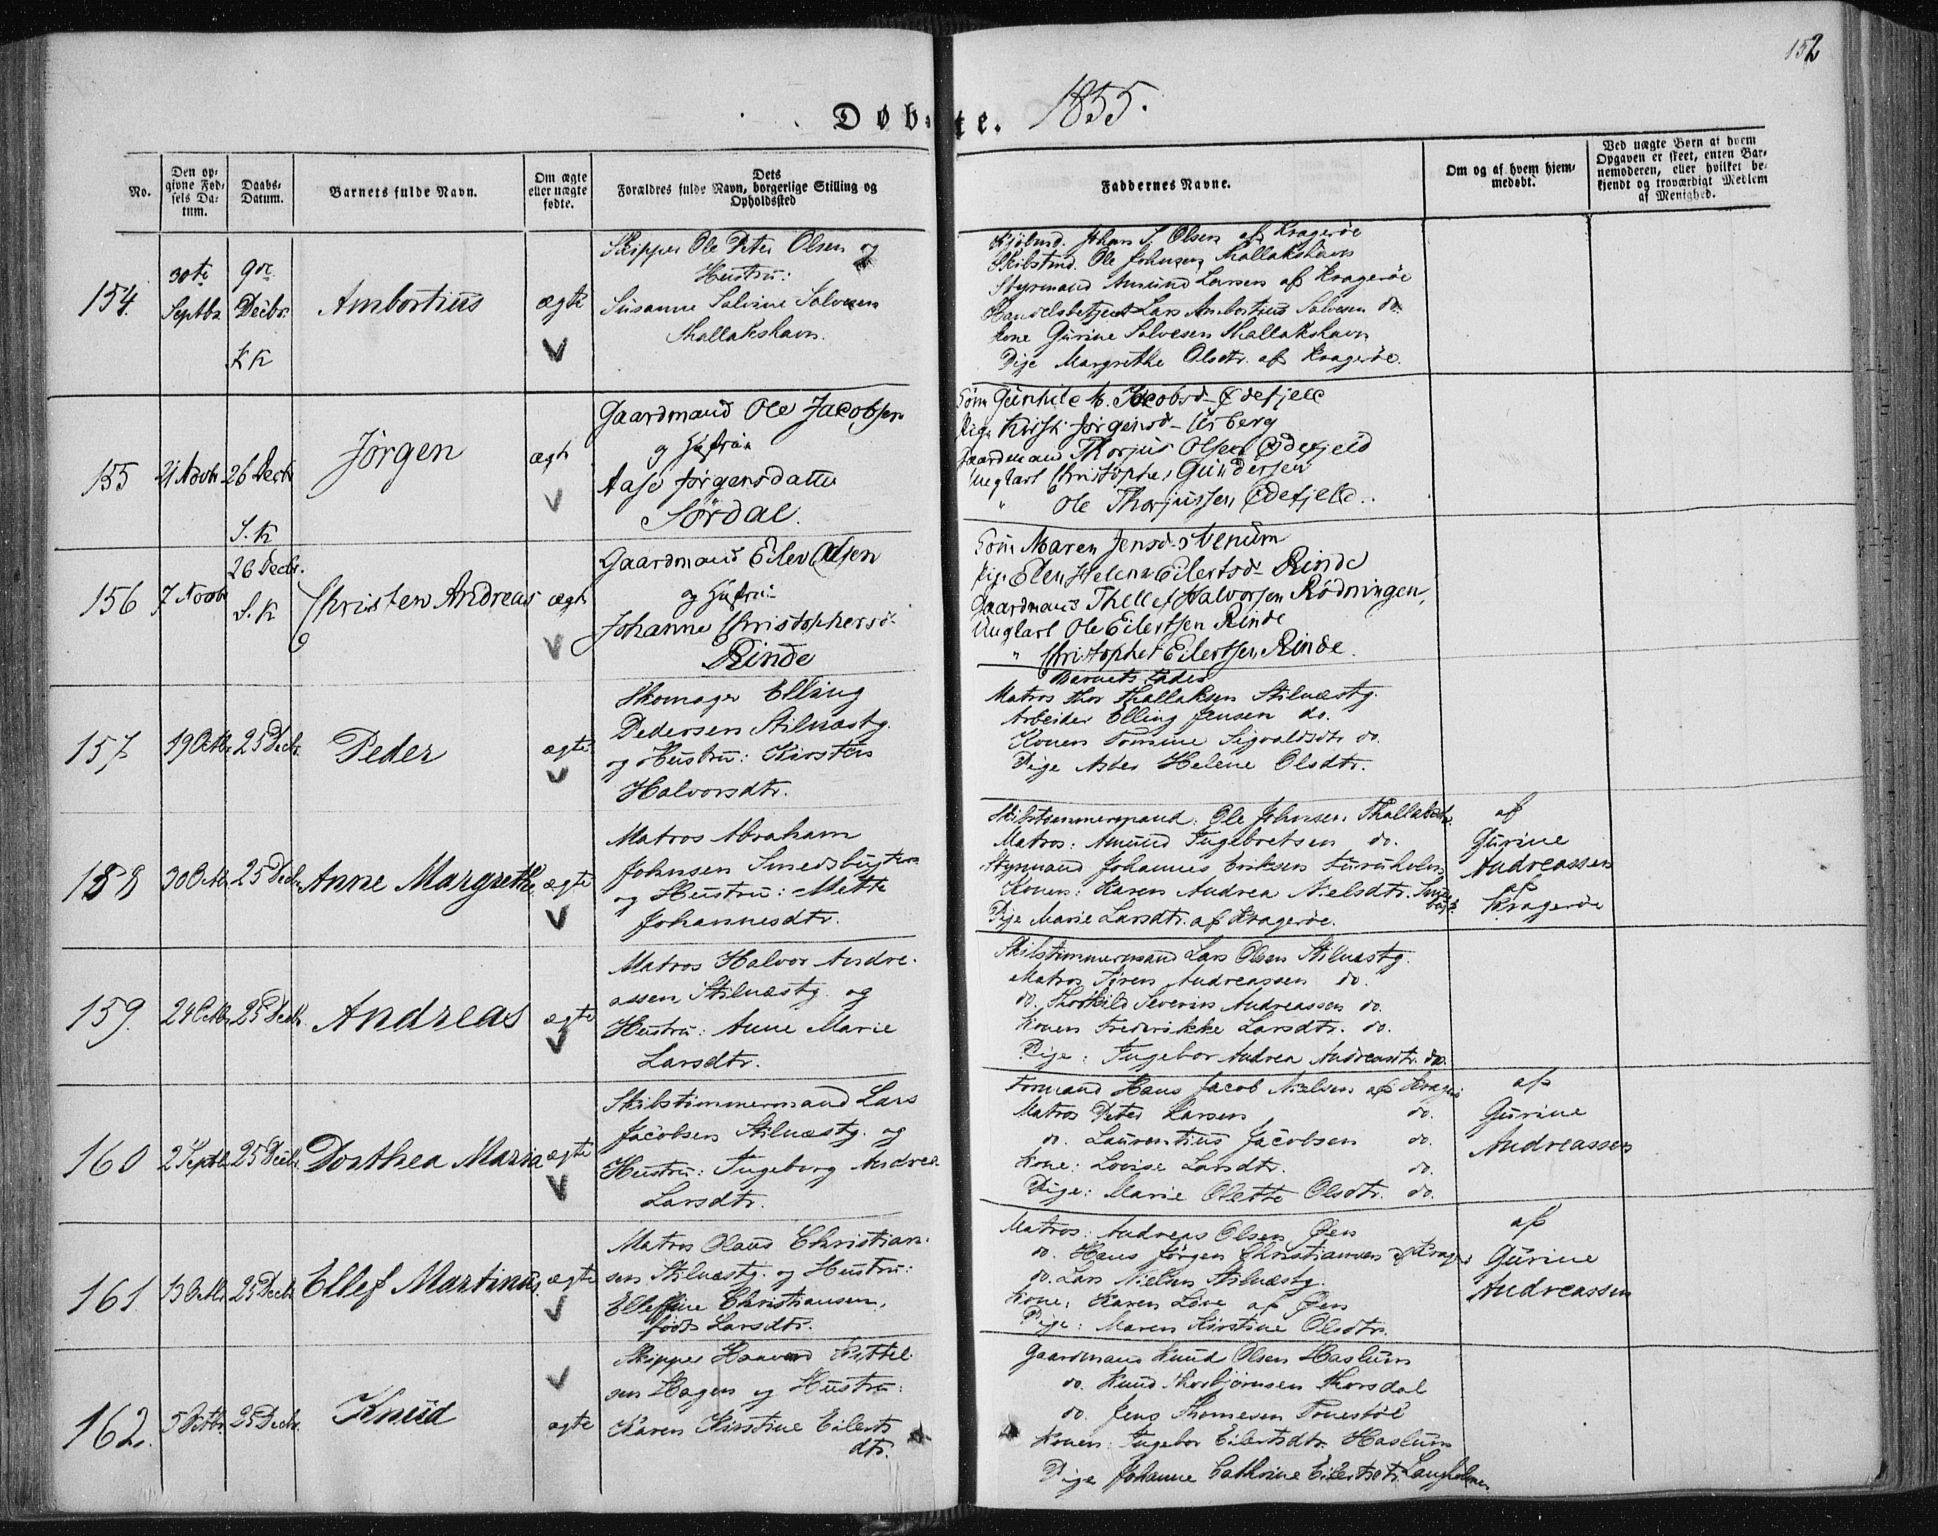 152
Døbte. 1855.
No.
Den opgivne Fødsels Datum.
Daabs-Datum.
Barnets fulde Navn.
Om ægte eller uægte fødte.
Dets Forældres fulde Navn, borgerlige Stilling og Opholdssted
Faddernes Navne.
Om og af hvem hjemmedøbt.
Ved uægte Børn af hvem Opgaven er skeet, enten Barnemoderen, eller hvilket bekjendt og troværdigt Medlem af Menighed.
154.
30te Septbr
9de Decbr. KK
Ambortius
ægte
Skipper Ole Peter Olsen og
Hustru:
Susanne Salvine Salvesen
Thallakshavn.
Johan S. Olsen af Kragerøe
Ole Johnsen Thallakshavn
Styrmand Amund Larsen af Kragerøe
Handelsbetjent Lars Ambortius Salvesen do.
Kone Gurine Salvesen Thallakshavn
Pige Margrethe Olsdtr. af Kragerøe.
155
21 Novbr
26 Decbr S.K
Jørgen
ægte
Gaardmand Ole Jacobsen
og Hustru
Aase Jørgensdatter
Sørdal.
Gunhild M. Jacobsd - Ødefjeld
Pige Kirsti Jørgensd -
Gaardmand Thorjus Olsen Ødefjeld
Ungkarl Christopher Gundersen
" Ole Thorjussen Ødefjeld.
156
7 Novbr
26 Decbr. S.K
Christen Andreas
ægte
Gaardmand Eilert Olsen
og Hustru:
Johanne Christophersd.
Rinde
Maren Jensd - Stenum
Pige Elen Helena Eilertsd - Rinde
Gaardmand Thellef Halvorsen Rødningen,
Ungkarl Ole Eilertsen Rinde
" Christopher Eilertsen Rinde.
157
19 Octbr.
25 Decbr.
Peder
ægte
Skomager Elling
Pedersen Stilnæstg.
og Hustru: Kirsten
Halvorsdtr.
Barnets Fader
Matros Thor Thallaksen Stilnæstg.
Arbeider Elling Jensen do.
Konen Tomine Sigvaldsdtr do.
Pige Helene Olsdtr.
158
30 Octbr.
25 Decbr
Anne Margrethe
ægte
Matros Abraham
Johnsen Smedsbugten
og Hustru: Mette
Johannesdtr.
Skibstømmermand: Ole Johnsen
Matros: Amund Ingebretsen do.
Styrmand Johannes Eriksen Furuholm
Konen: Karen Andrea Nielsdtr.
Pige Marie Larsdtr. af Kragerøe.
af
Gurine
Andreassen
af
Kragerøe
159.
24 Octbr.
25 Decbr.
Andreas
ægte
Matros Halvor Andre-
assen Stilnæstg. og
Hustru: Anne Marie
Larsdtr.
Skibstømmermand Lars Olsen Stilnæstg.
Matros Søren Andreassen do.
do. Thorkild Severin Andreassen do.
Konen Frederikke Larsdtr. do.
Pige: Ingebor Andrea Andreasdtr. do.
160
2 Septbr.
25 Decbr.
Dorthea Maria
ægte
Skibstømmermand Lars
Jacobsen Stilnæstg. og
Hustru: Ingeborg Andrea
Larsdtr.
Formand Hans Jacob Nielsen af Kragerø
Matros Peter Larsen do.
do. Laurentius Jacobsen do.
Kone: Lovise Larsdtr. do.
Pige: Marie Olette Olsdtr. do.
af
Gurine
Andreassen
161
13 Octbr
25 Decbr
Ellef Martinus
ægte
Matros Olaus Christian-
sen Stilnæstg. og Hustru:
Ellefine Christiansen,
født Larsdtr.
Matros: Andreas Olsen Øen
do. Hans Jørgen Christiansen af Kragerø
do. Lars Nielsen Stilnæstg.
Kone: Karen Love af Øen
Pige: Maren Kirstine Olsdtr.
af
Gurine
Andreassen
162.
5 Octbr.
25 Decbr.
Knud
ægte
Skipper Haavard Kittel-
sen Hagen og Hustru:
Karen Kirstine Eilerts
dtr.
Gaardmand Knud Olsen Haslum
do. Knud Thorbjørnsen Thorsdal
do. Jens Thomesen
Konen: Ingebor Eilertsdtr. Haslum
Pige Johanne Cathrine Eilertsdtr Langholmen